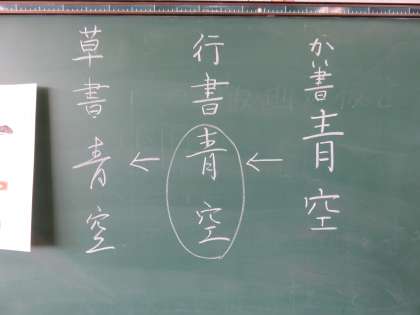 かい書青空
←
行書青空
←
草書青空